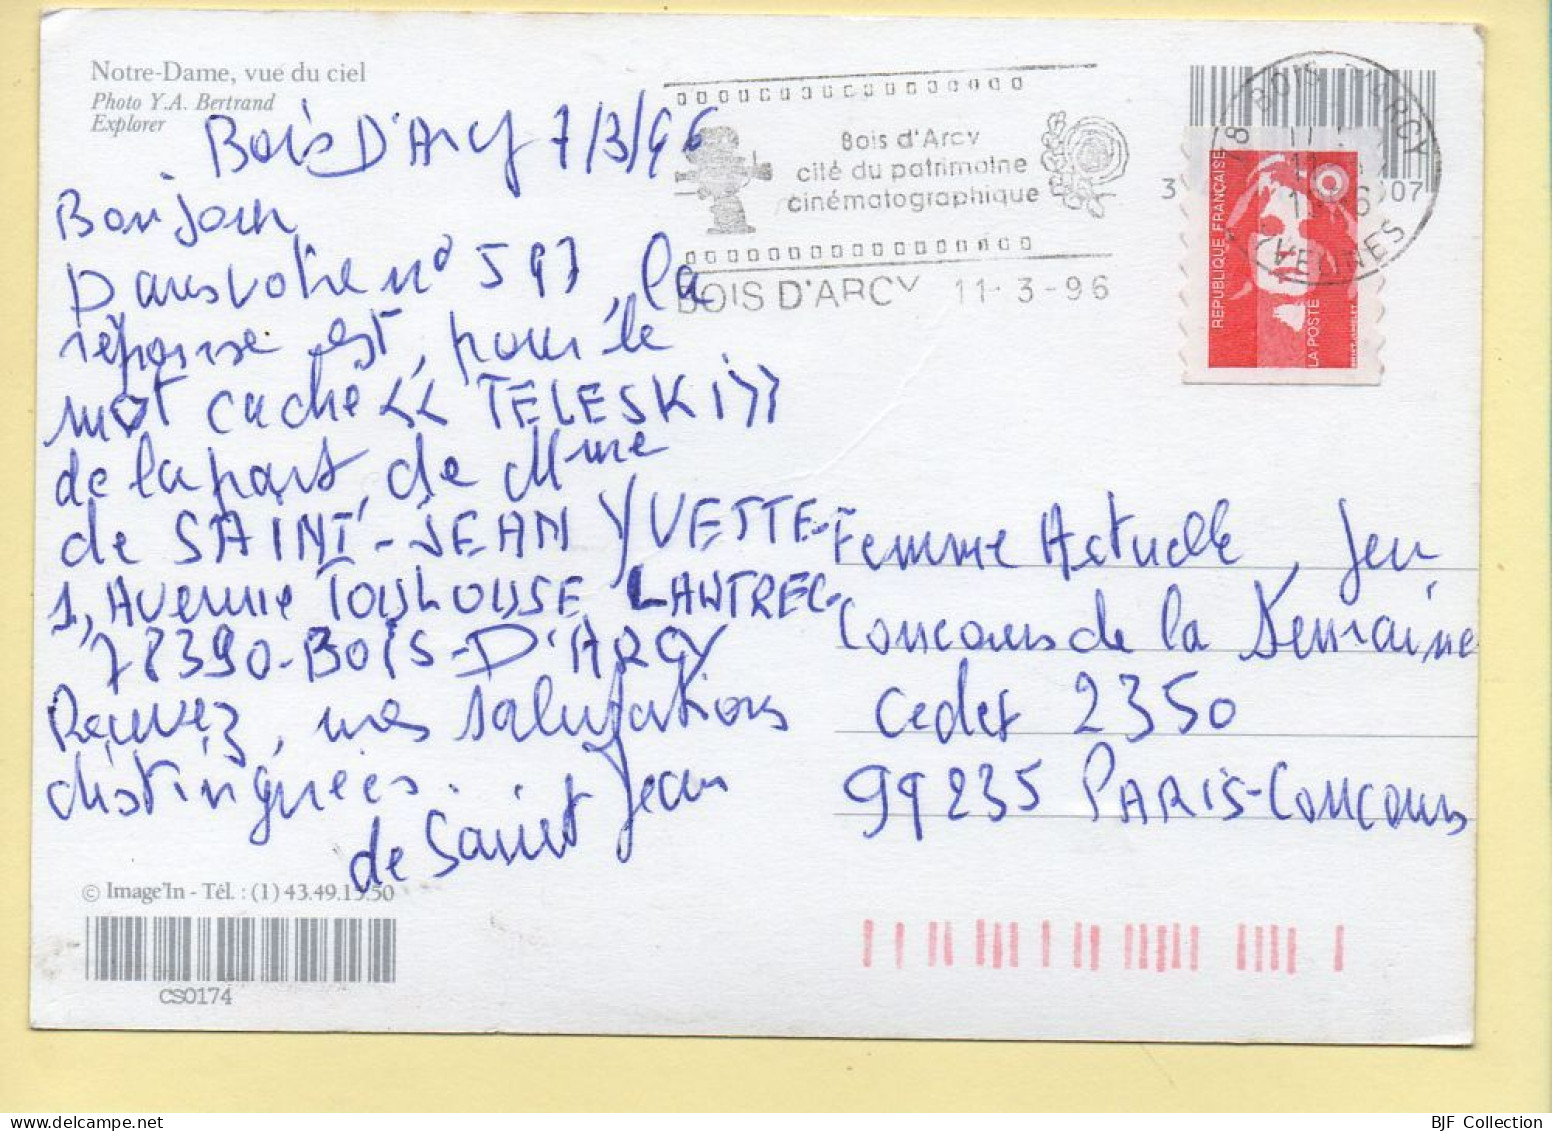 Notre-Dame, vue du ciel
Photo Y.A. Bertrand
Explorer
Bois D'Arcy 7/3/96
Bonjour
Dans votre n° 597, la
réponse est, pour le
mot caché << TELESKI >>
de la part de Mme
de SAINT-JEAN YVETTE-
1, Avenue TOULOUSE LAUTREC-
78390-BOIS-D'ARCY
Recevez, mes salutations
distinguées.
de Saint Jean
© Image'In - Tél. : (1) 43.49.13.50
CS0174
Bois d'Arcy
cité du patrimoine
cinématographique
BOIS D'ARCY 11-3-96
78 BOIS D'ARCY
YVELINES
3
07
REPUBLIQUE FRANÇAISE
LA POSTE
Femme Actuelle, Jeu
Concours de la Semaine
Cedex 2350
99235 PARIS-Concours
BJF Collection